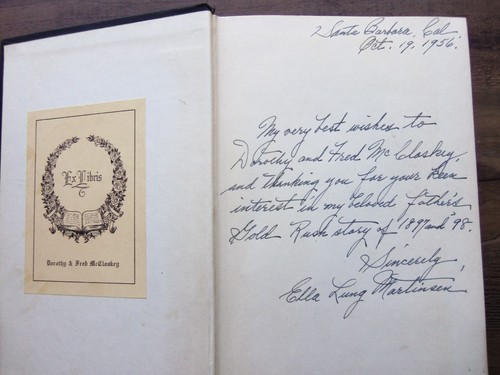 Ex Libris
Dorothy & Fred McCloskey
Santa Barbara, Cal.
Oct. 19, 1956.
My very best wishes to
Dorothy and Fred McCloskey,
and thanking you for your keen
interest in my beloved father's
Gold Rush story of 1897 and '98.
Sincerely,
Ella Lung Martinsen